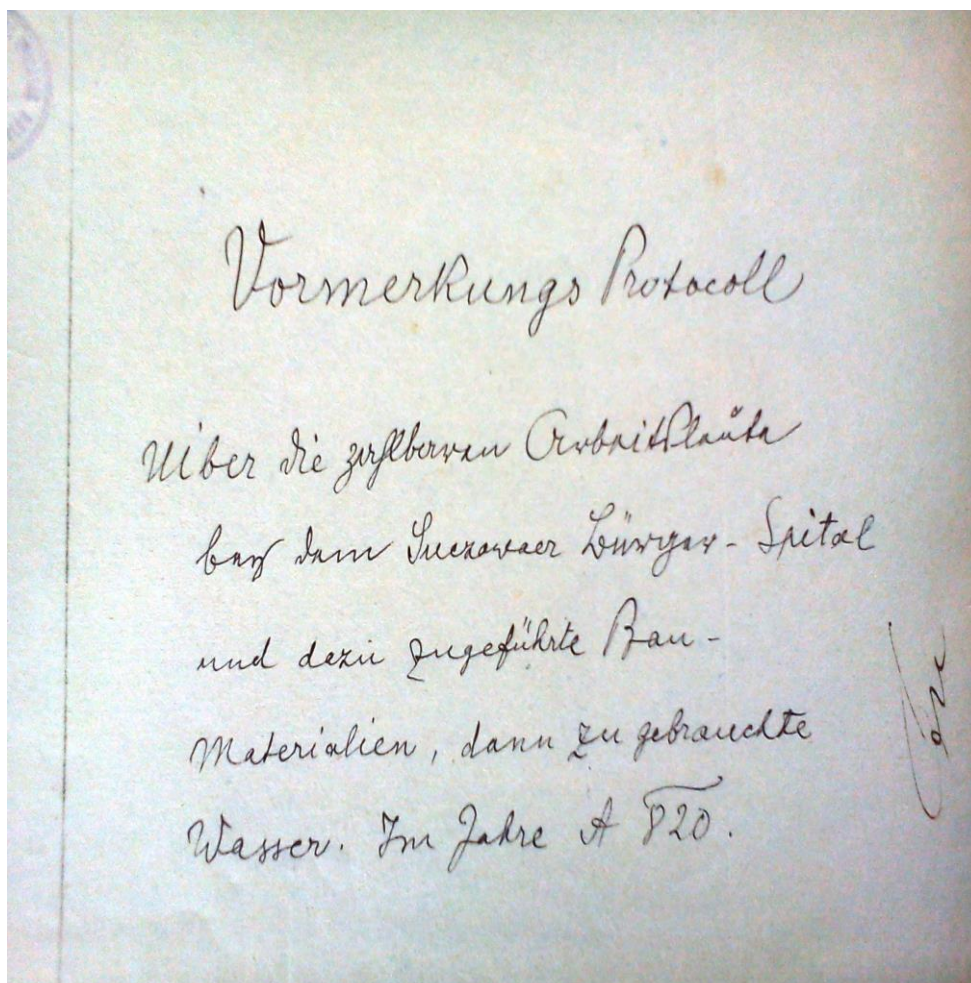 Vormerkungs Protocoll
Uiber die zahlbaren Arbeitsleute
bey dem Suczawaer Bürger-Spital
und dazu zugeführte Bau-
Materialien, dann zu gebrauchte
Wasser. Im Jahre A 820.